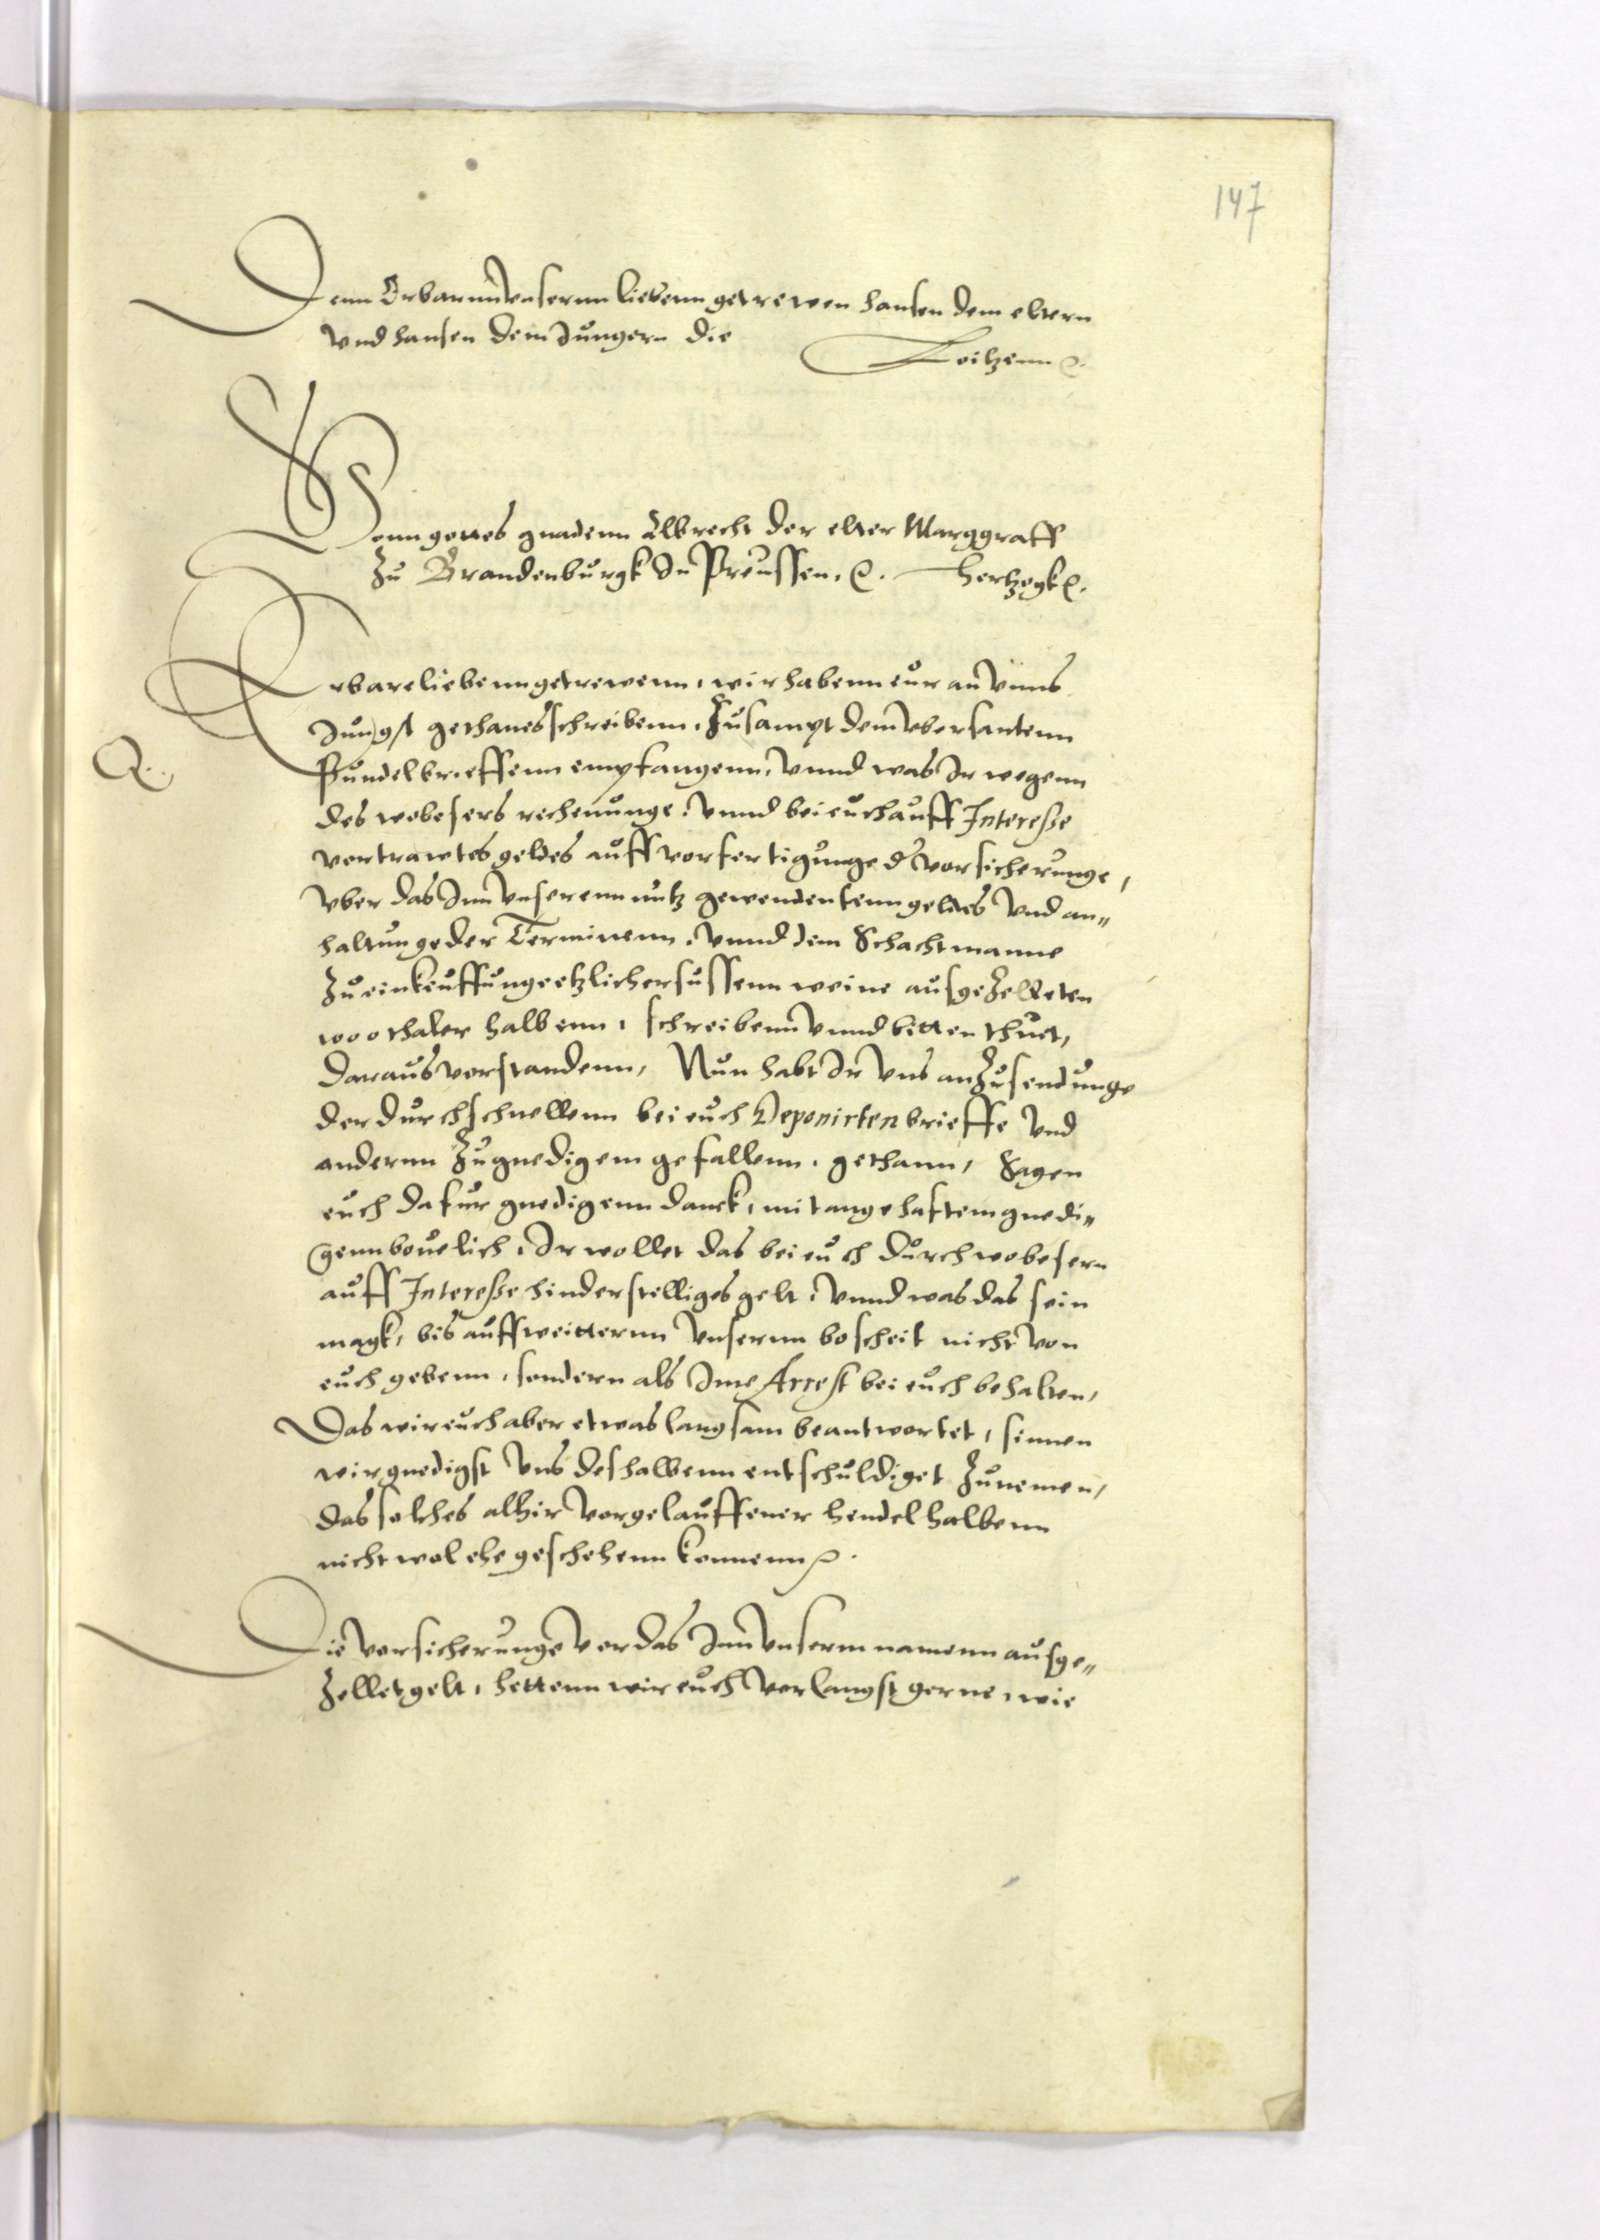 147
Denn Erbarnn unsernn liebenn getrewen hansen dem eltern
und hansen dem Jungern die
Loitzenn ꝛc.
Vonn gottes gnadenn Albrecht der elter Marggraff
Zu Brandenburgk In Preussen, ꝛc. Hertzogk ꝛc.
Erbare liebenn getrewenn, wir habenn eur an unns
Jungst gethanes schreibenn, Zusampt dem ubersantenn
Bundel brieffenn empfangenn, unnd was Ir wegenn
Q.
des webesers rechenunge, unnd bei euch auff Interesse
vertrawtes geldes auff vorfertigunge d vorsicherunge,
uber das Inn unserenn nutz gewendentenn geldes und an„
haltunge der Terminenn, unnd dem Schachtmanne
Zu einkeuffunge etzlicher sussenn weine ausgezelleten
1000 thaler halbenn, schreibenn unnd bitten thuet,
daraus vorstandenn, Nun habt Ir uns an Zusendunge
der durch schnellenn bei euch Deponirten brieffe und
anderenn Zu gnedigem gefallenn, gethann, Sagen
euch dafur gnedigenn danck, mit angehaftem gnedi„
genn bevelich, Ir wollet das bei euch durch webesern
auff Interesse hinderstelliges gelt, unnd was das sein
magk, bis auff weitternn unsernn bescheit nicht von
euch gebenn, sondern als Inne Arrest bei euch behalten,
Das wir euch aber etwas langsam beantwortet, sinnen
wir gnedigst uns deshalbenn entschuldiget Zunemen,
das solches alhir vorgelauffener hendel halbenn
nicht wol ehe geschehenn konnenn ꝛc.
Die vorsicherunge vor das Inn unserm namenn ausge„
Zellet gelt, hettenn wir euch vorlangst gerne, wie